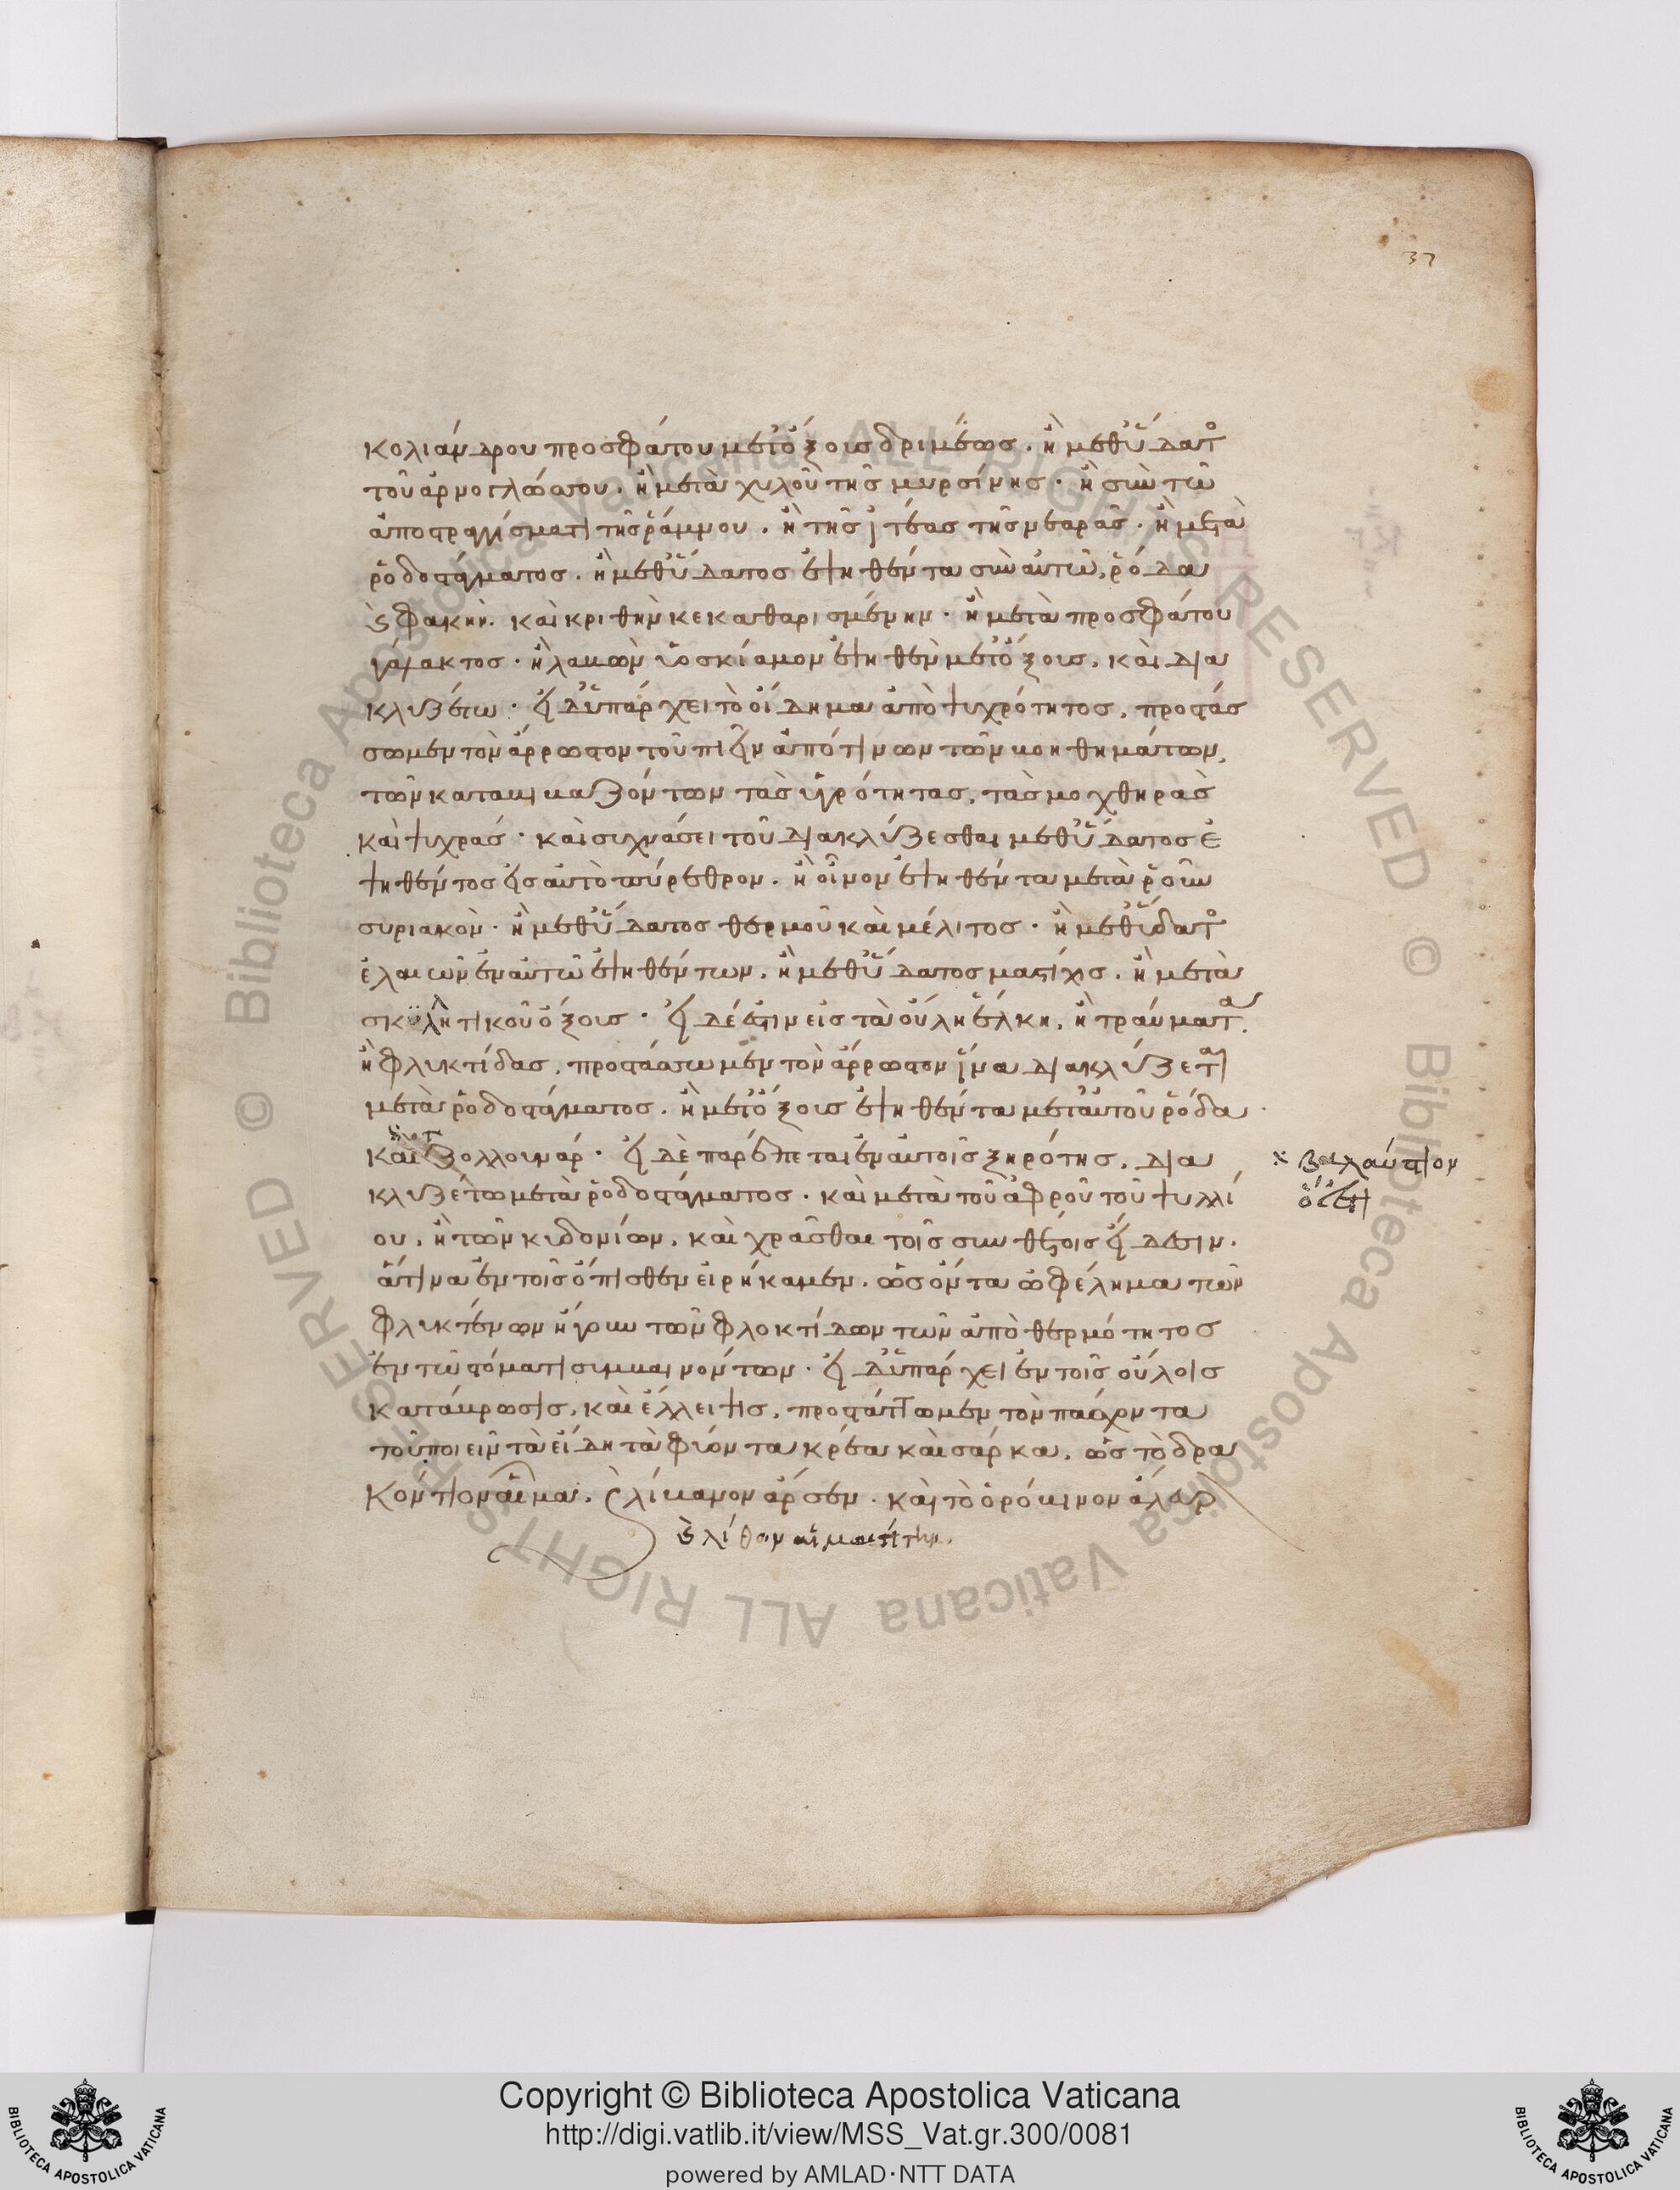 37
κολιάνδρου προσφάτου μετ' ὄξους δριμέως. ἢ μεθ' ὕδατ
τοῦ ἀρνογλώσσου. ἢ μετὰ χυλοῦ τῆς μυρσίνης. ἢ σὺν τῶ
ἀποστραγγίσματι τῆς ῥάμμου. ἢ τῆς ἰτέας τῆς νεαρᾶς. ἢ μετὰ
ῥοδοστάγματος. ἢ μεθ' ὕδατος ἑψηθέντα σὺν αὐτῶ, ῥόδα
καὶ φακὴν. καὶ κριθὴν κεκαθαρισμένην. ἢ μετὰ προσφάτου
γάλακτος. ἢ λαβὼν ὑοσκίαμον ἑψηθὲν μετ' ὄξους, καὶ δια
κλυζέτω. εἰ δ' ὑπάρχει τὸ οἴδημα ἀπὸ ψυχρότητος, προστάσ
σωμεν τὸν ἄρρωστον τοῦ πιεῖν ἀπό τινων τῶν βοηθημάτων,
τῶν καταβιβαζόντων τὰς ὑγρότητας, τὰς μοχθηρὰς
καὶ ψυχράς. καὶ συχνάσει τοῦ διακλύζεσθαι μεθ' ὕδατος ἑ
ψηθέντος εἰς αὐτὸ πύρεθρον. ἢ οἶνον ἑψηθέντα μετὰ ῥοῦν
συριακὸν. ἢ μεθ' ὕδατος θερμοῦ καὶ μέλιτος. ἢ μεθ' ὕδατ
ἐλαιῶν ἐν αὐτῶ ἑψηθέντων. ἢ μεθ' ὕδατος μαστίχης. ἢ μετὰ
σκυλητικοῦ ὄξους. εἰ δέ ἐστιν εἰς τὰ οὖλη ἕλκη, ἢ τραύματ
ἢ φλυκτίδας, προστάσσωμεν τὸν ἄρρωστον ἵνα διακλύζετ
μετὰ ῥοδοστάγματος. ἢ μετ' ὄξους ἑψηθέντα μετ' αὐτοῦ ῥόδα
καὶ ζολλουνάρ. εἰ δὲ παρέπεται ἐν αὐτοῖς ξηρότης, δια
κλυζέτω μετὰ ῥοδοστάγματος. καὶ μετὰ τοῦ ἀφροῦ τοῦ ψυλλί
ου, ἢ τῶν κυδονίων, καὶ χρᾶσθαι τοῖς συνθέτοις εἴδεσιν.
ἅτινα ἐν τοῖς ὄπισθεν εἰρήκαμεν. ὡς ὄντα ὠφέλημα τῶν
φλυκτένων ἤγουν τῶν φλοκτίδων τῶν ἀπὸ θερμότητος
ἐν τῶ στόματι συμβαινόντων. εἰ δ' ὑπάρχει ἐν τοῖς οὔλοις
κατάβρωσις, καὶ ἔλλειψις, προστάττωμεν τὸν πάσχοντα
τοῦ ποιεῖν τὰ εἴδη τὰ φύοντα κρέα καὶ σάρκα, ὡς τὸ δρα
κόντιον αἷμα, λίβανον ἄρσεν. καὶ τὸ ὀρόβινον ἄλευρ
καὶ λίθον αἱματίτην.
βαλαύστιον
ὅ ἐστι
Copyright © Biblioteca Apostolica Vaticana
http://digi.vatlib.it/view/MSS_Vat.gr.300/0081
powered by AMLAD·NTT DATA